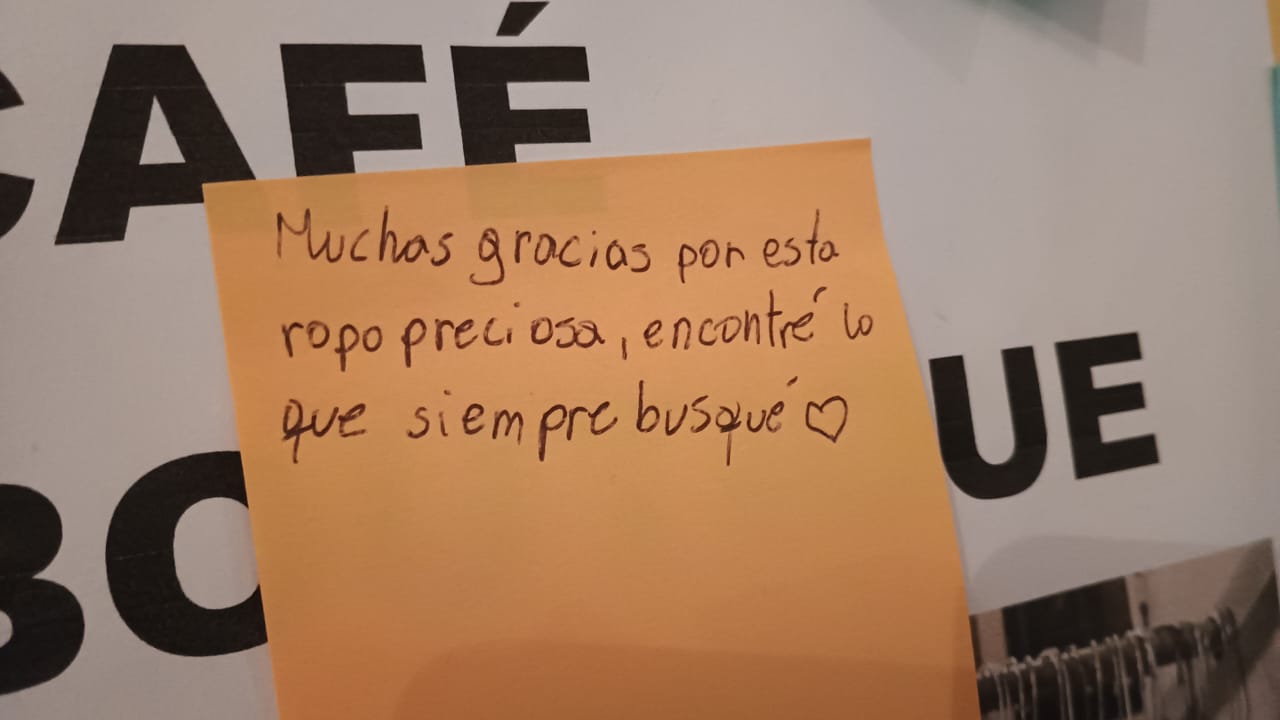 CAFÉ
Muchas gracias por esta
ropa preciosa, encontré lo
que siempre busqué ♡
BO UE